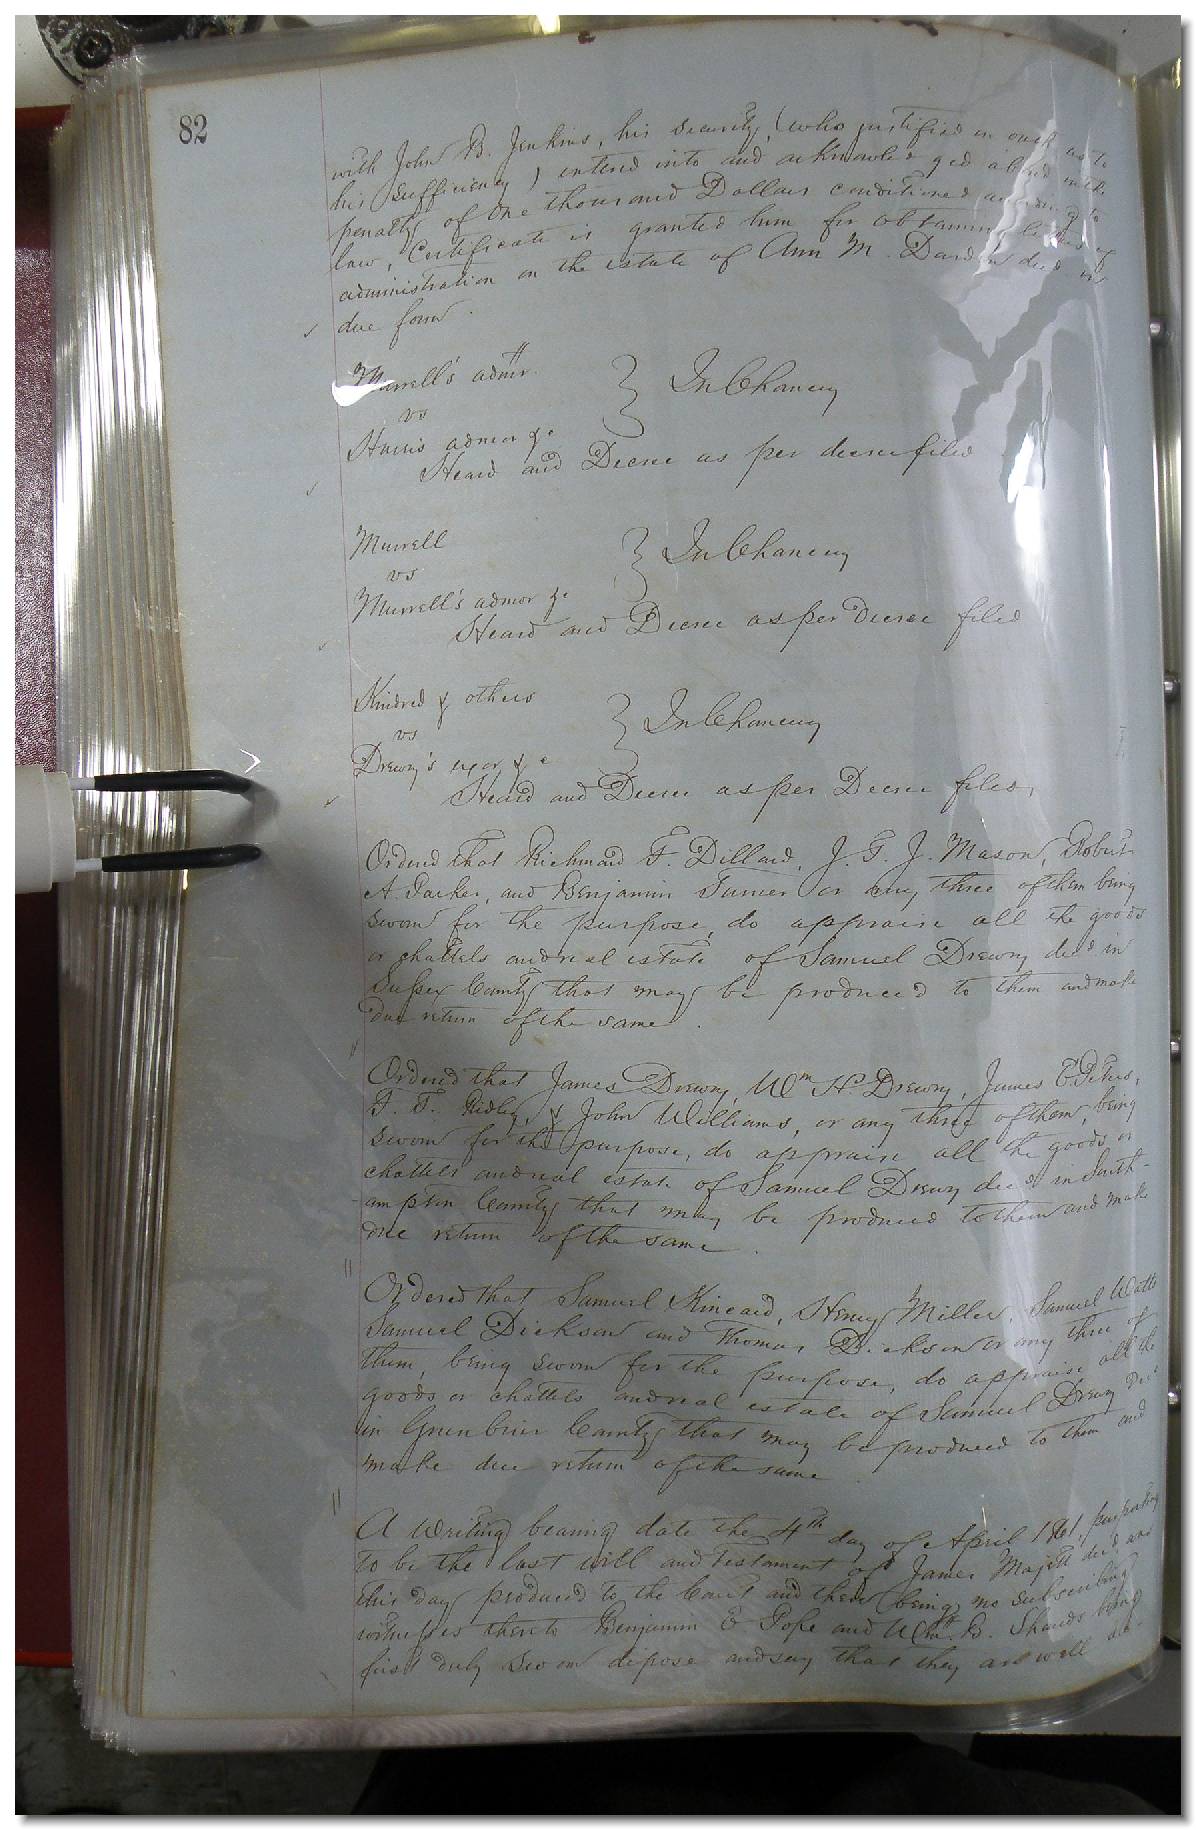 82
with John B. Jenkins, his security, (who justified on oath as to
his sufficiency) entered into and acknowledged a bond in the
penalty of One thousand Dollars conditioned according to
law, Certificate is granted him for obtaining letters of
administration on the estate of Ann M. Darden decd in
due form.
Murrell's admr
vs
Harris admor &c
In Chancery
Heard and Decree as per decree filed
Murrell
vs
Murrell's admor &c
In Chancery
Heard and Decree as per Decree filed
Kindred & others
vs
Drewry's exor &c
In Chancery
Heard and Decree as per Decree filed.
Ordered that Richmard F. Dillard, J. T. J. Mason, Robert
A. Parker, and Benjamin Turner or any three of them being
sworn for the purpose, do appraise all the goods
or chattels and real estate of Samuel Drewry decd in
Sussex County that may be produced to them and make
due return of the same.
Ordered that James Drewry, Wm H. Drewry, James E Peters,
T. T. Ridley, & John Williams, or any three of them, being
sworn for the purpose, do appraise all the goods or
chattels and real estate of Samuel Drewry decd in South-
ampton County that may be produced to them and make
due return of the same.
Ordered that Samuel Kincaid, Henry Miller, Samuel Watts
Samuel Dickson and Thomas Dickson or any three of
them, being sworn for the purpose, do appraise all the
goods or chattels and real estate of Samuel Drewry decd
in Greenbrier County that may be produced to them and
make due return of the same
A Writing bearing date the 4th day of April 1861, purporting
to be the last will and testament of James Majett decd was
this day produced to the Court and there being no subscribing
witnesses thereto Benjamin E Pope and Wm. B. Shands being
first duly sworn depose and say that they are well